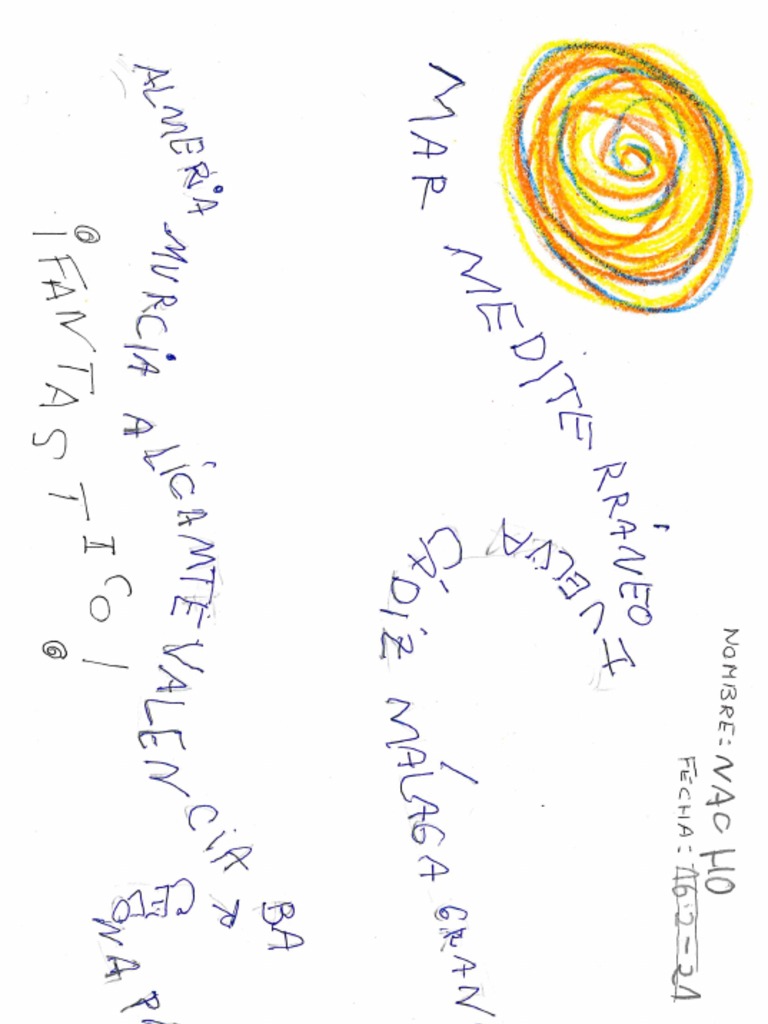 NOMBRE: NACHO
FECHA: 16-2-21
MAR MEDITERRÁNEO
HUELVA CÁDIZ MÁLAGA GRAN
ALMERÍA MURCIA ALICAMTE VALENCIA BAR
CEO
NAP
¡FANTASTICO!